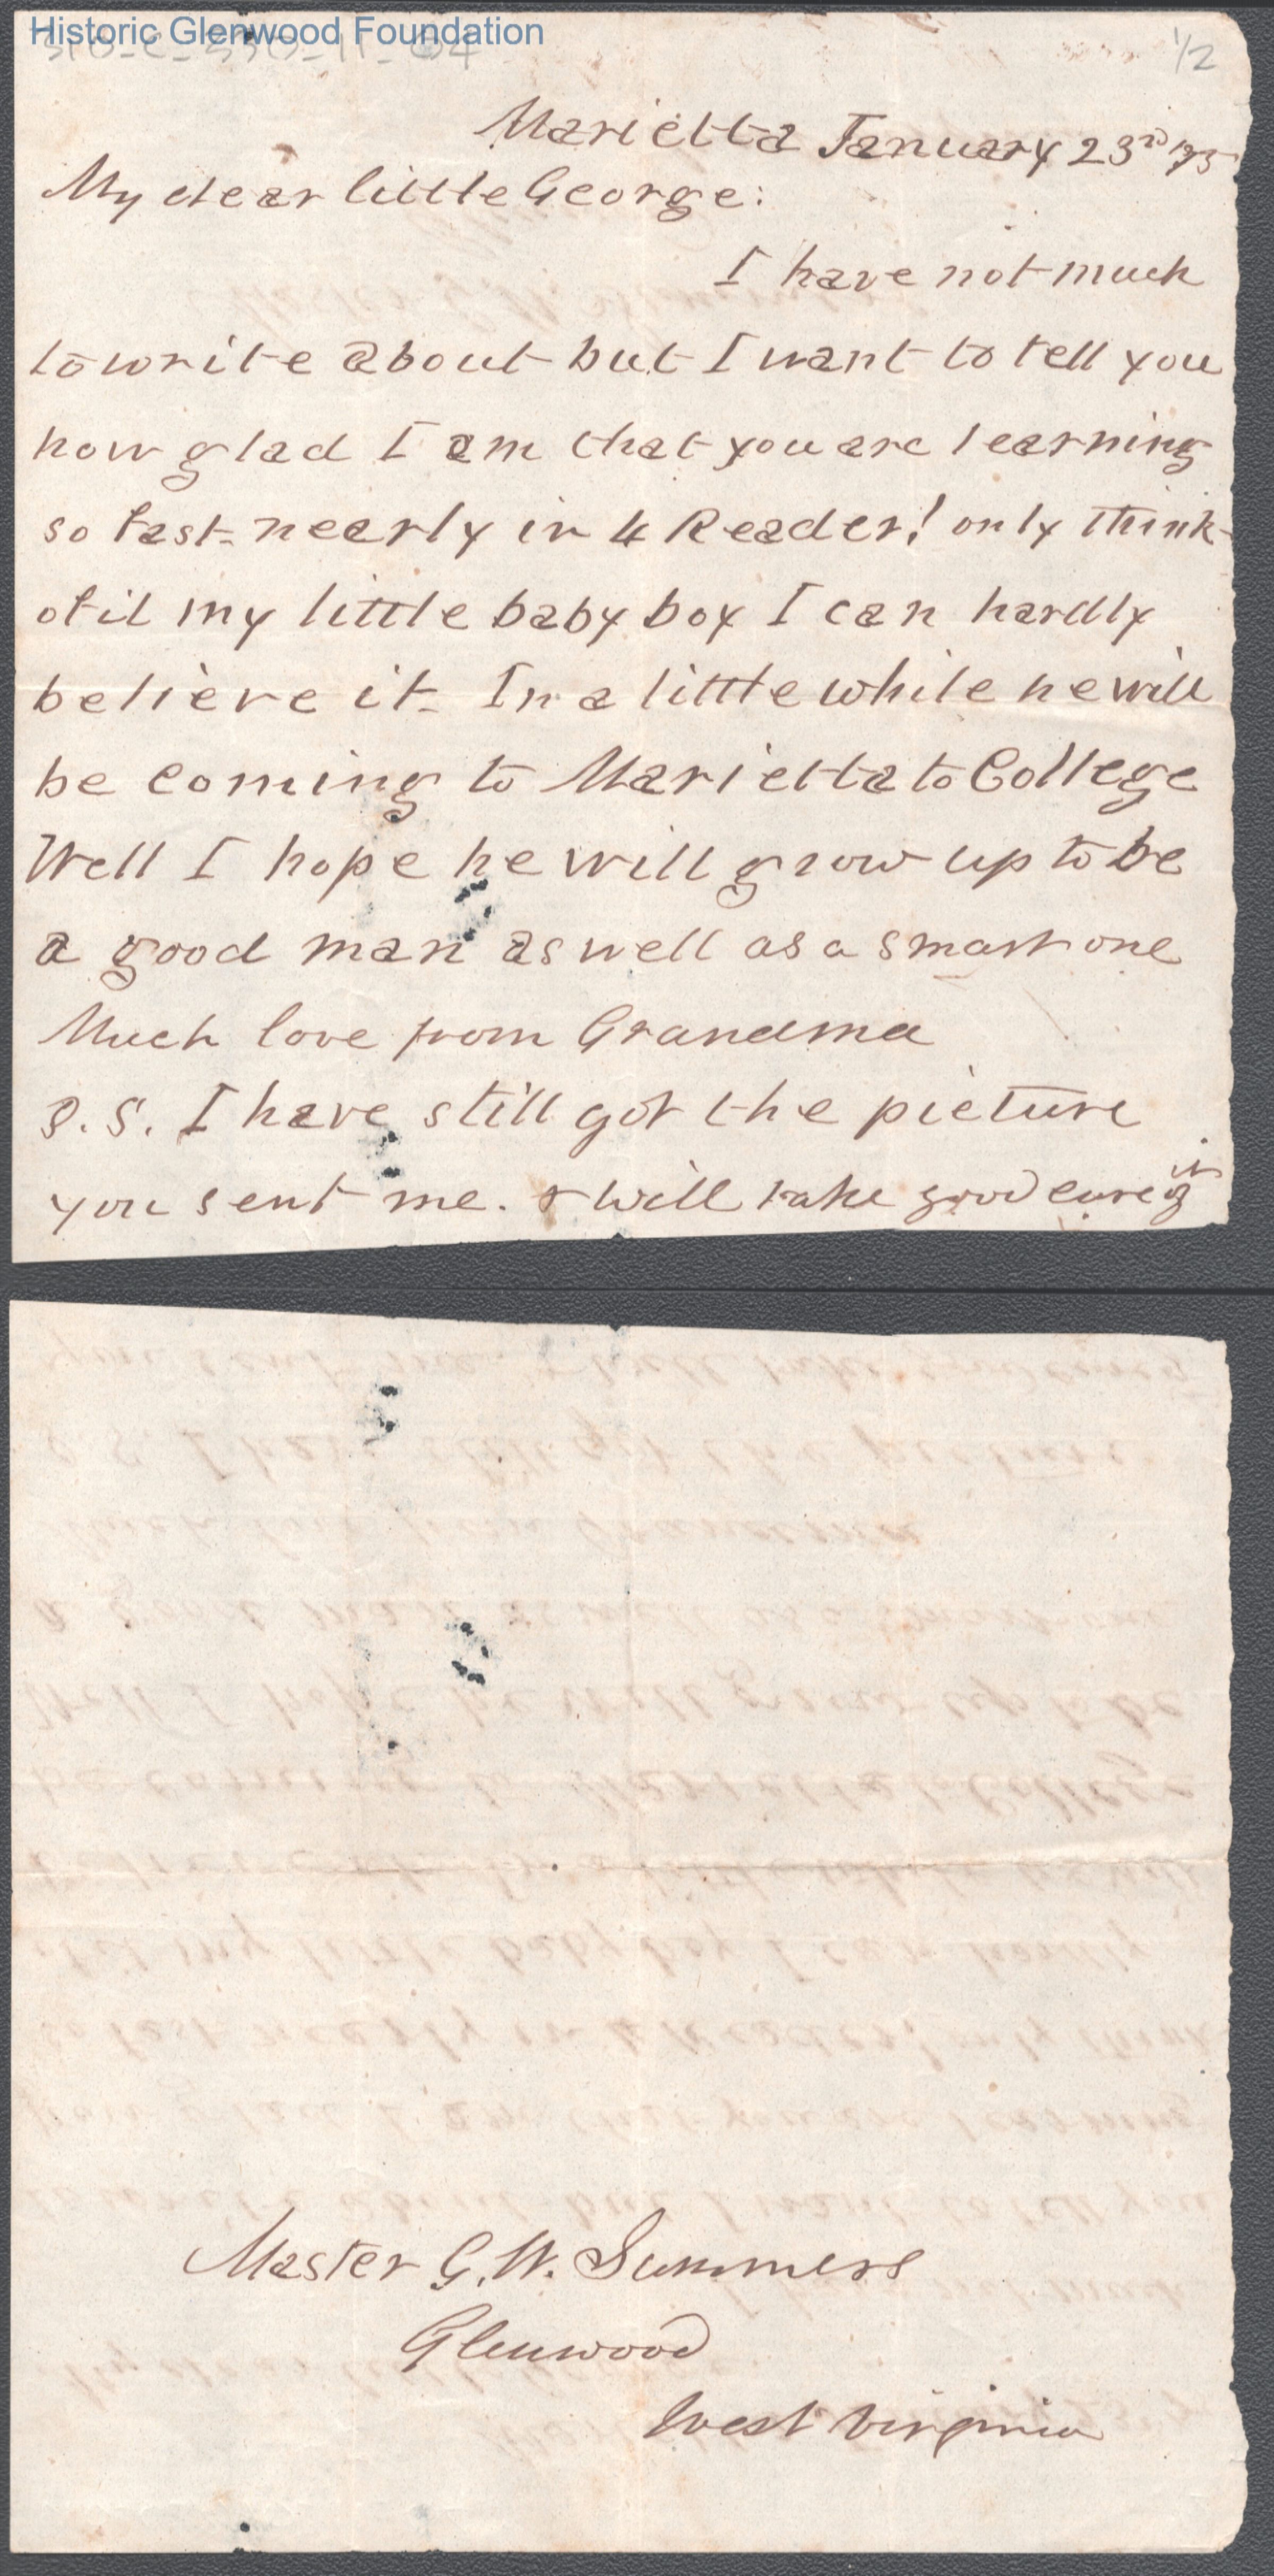 Historic Glenwood Foundation
1/2
Marietta January 23rd
My dear little George:
I have not much
to write about but I want to tell you
how glad I am that you are learning
so fast. nearly in 4 Reader! only think
of it my little baby boy I can hardly
believe it. In a little while he will
be coming to Marietta to College
Well I hope he will grow up to be
a good man as well as a smart one
Much love from Grandma
P.S. I have still got the picture
you sent me. & will take good care of it
Master G. W. Summers
Glenwood
West Virginia